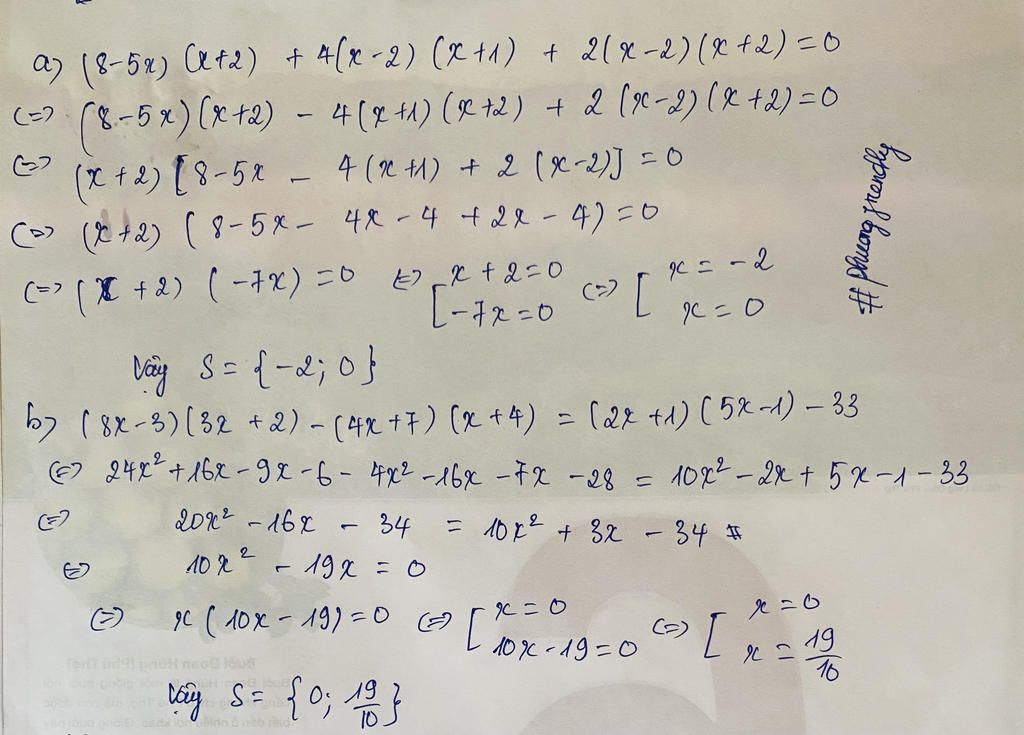 a) (8-5x) (x+2) + 4(x-2) (x+1) + 2(x-2)(x+2) = 0
(=) (8-5x)(x+2) - 4(x+1)(x+2) + 2 (x-2)(x+2) = 0
(=) (x+2) [8-5x - 4(x+1) + 2 (x-2)] = 0
(=) (x+2) (8-5x - 4x - 4 + 2x - 4) = 0
(=) (x+2) (-7x) = 0 (=) [ x+2=0 (=) [ x = -2
-7x=0 x = 0
#phuongfrendly
Vậy S = {-2; 0}
b) (8x-3)(3x+2) - (4x+7)(x+4) = (2x+1)(5x-1) - 33
(=) 24x² + 16x - 9x - 6 - 4x² - 16x - 7x - 28 = 10x² - 2x + 5x - 1 - 33
(=) 20x² - 16x - 34 = 10x² + 3x - 34
(=) 10x² - 19x = 0
(=) x(10x-19) = 0 (=) [ x = 0 (=) [ x = 0
10x-19=0 x = 19/10
Vậy S = {0; 19/10}